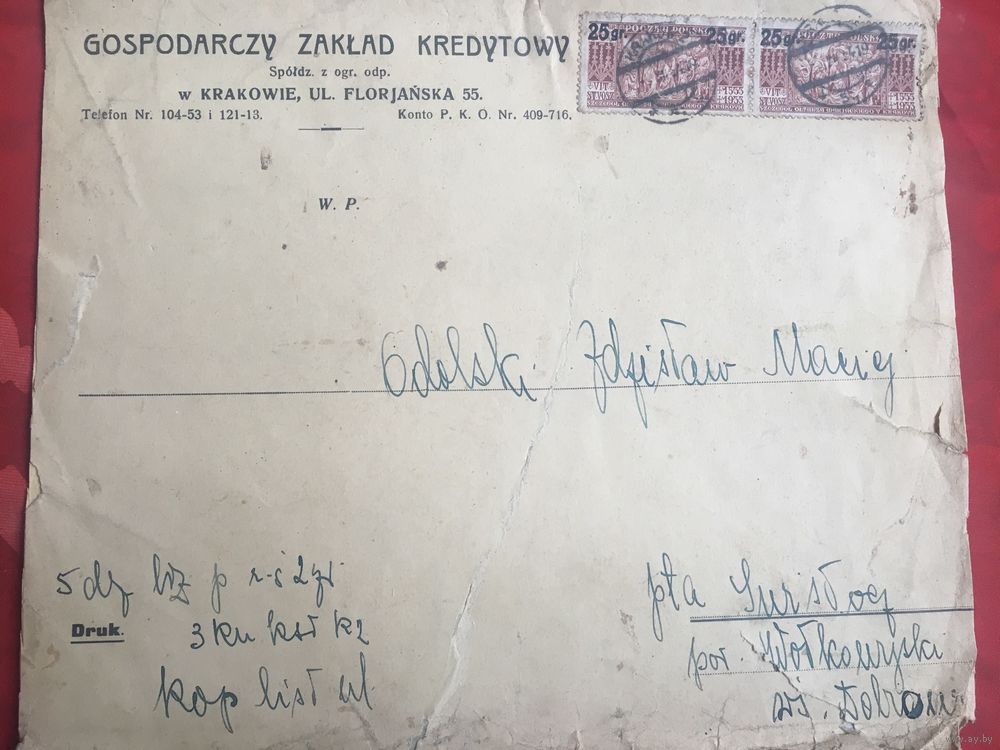 GOSPODARCZY ZAKŁAD KREDYTOWY
Spółdz. z ogr. odp.
w KRAKOWIE, UL. FLORJAŃSKA 55.
Telefon Nr. 104-53 i 121-13.
Konto P. K. O. Nr. 409-716.
25 gr. POCZTA POLSKA 25 gr.
WIT STWOSZ 1533 1933
25 gr. POCZTA POLSKA 25 gr.
WIT STWOSZ 1533 1933
W. P.
Odolski Zdzisław Maciej
pta Świsłocz
pow. Wołkowyski
wś. Dobro
5 dz p
Druk.
3 kw
kop list ul
ay.by